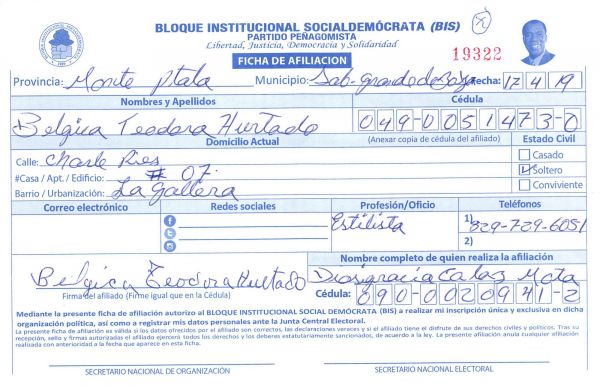 BLOQUE INSTITUCIONAL SOCIALDEMÓCRATA (BIS)
PARTIDO PEÑAGOMISTA
Libertad, Justicia, Democracia y Solidaridad
FICHA DE AFILIACION
19322
Provincia: Monte Plata Municipio: Sab. grande de Boya Fecha: 12 4 19
Nombres y Apellidos Cédula
Belgica Teodora Hurtado 049-0051473-0
Domicilio Actual (Anexar copia de cédula del afiliado) Estado Civil
Calle: Charle Ries Casado
#Casa / Apt. / Edificio: # 07. Soltero
Barrio / Urbanización: La gallera Conviviente
Correo electrónico Redes sociales Profesión/Oficio Teléfonos
Estilista 1) 829-729-6051
2)
Nombre completo de quien realiza la afiliación
Belgica Teodora Hurtado Mota
Firma del afiliado (Firme igual que en la Cédula) Cédula: 090-0020941-2
Mediante la presente ficha de afiliación autorizo al BLOQUE INSTITUCIONAL SOCIAL DEMÓCRATA (BIS) a realizar mi inscripción única y exclusiva en dicha
organización política, así como a registrar mis datos personales ante la Junta Central Electoral.
La presente ficha de afiliación es válida si los datos ofrecidos por el afiliado son correctos, las declaraciones veraces y si el afiliado tiene el disfrute de sus derechos civiles y políticos. Tras su
recepción, sello y firmas autorizadas el afiliado ejercerá todos los derechos y los deberes estatutariamente sancionados, de acuerdo a la ley. La presente afiliación anula cualquier afiliación
realizada con anterioridad a la fecha que aparece en esta ficha.
SECRETARIO NACIONAL DE ORGANIZACIÓN SECRETARIO NACIONAL ELECTORAL